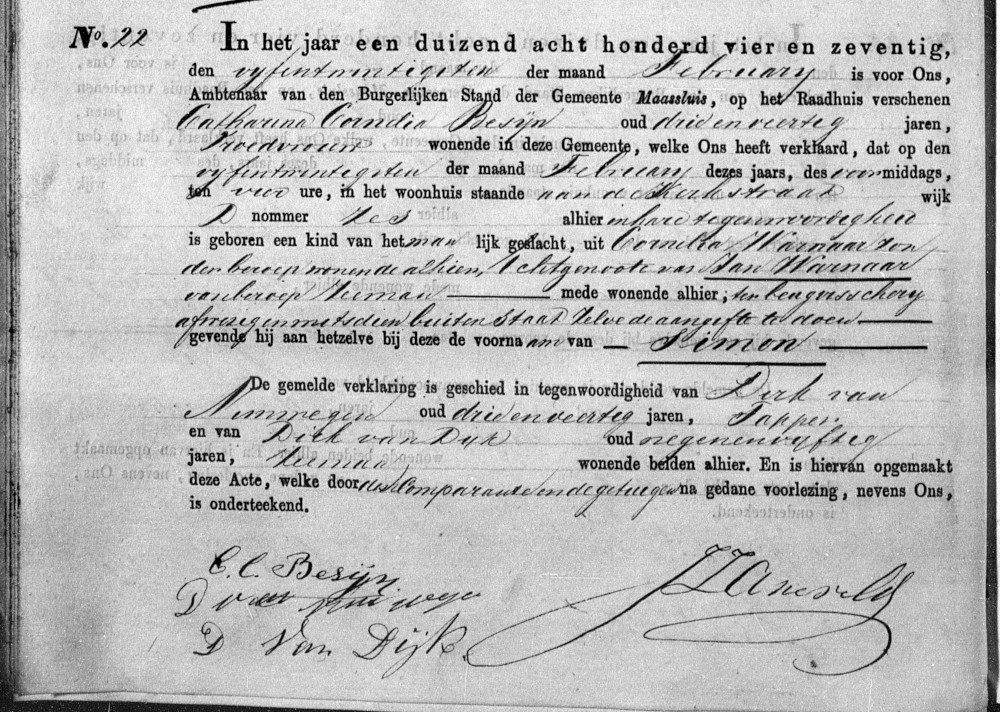 No. 22
In het jaar een duizend acht honderd vier en zeventig,
den vyfentwintigsten der maand February is voor Ons,
Ambtenaar van den Burgerlijken Stand der Gemeente Maassluis, op het Raadhuis verschenen
Catharina Cornelia Besijn oud drie en veertig jaren,
Vroedvrouw wonende in deze Gemeente, welke Ons heeft verklaard, dat op den
vyfentwintigsten der maand February dezes jaars, des voormiddags,
ten vier ure, in het woonhuis staande aan de Kerkstraat wijk
D nommer Zes alhier in hare tegenwoordigheid
is geboren een kind van het manlijk geslacht, uit Cornelia Warnaar zon
der beroep wonende alhier, Echtgenoote van Jan Warnaar
van beroep Zeeman mede wonende alhier; ter haringvisschery
afwezig en mitsdien buiten Staat zelve de aangifte te doen
gevende hij aan hetzelve bij deze de voornaam van Simon
De gemelde verklaring is geschied in tegenwoordigheid van Dirk van
Nimwegen oud drie en veertig jaren, Tapper
en van Dirk van Dyk oud negenenvyftig
jaren, Zeeman wonende beiden alhier. En is hiervan opgemaakt
deze Acte, welke door de Comparante en de getuigen na gedane voorlezing, nevens Ons,
is onderteekend.
C. C. Besijn
D van
D Van Dijk.